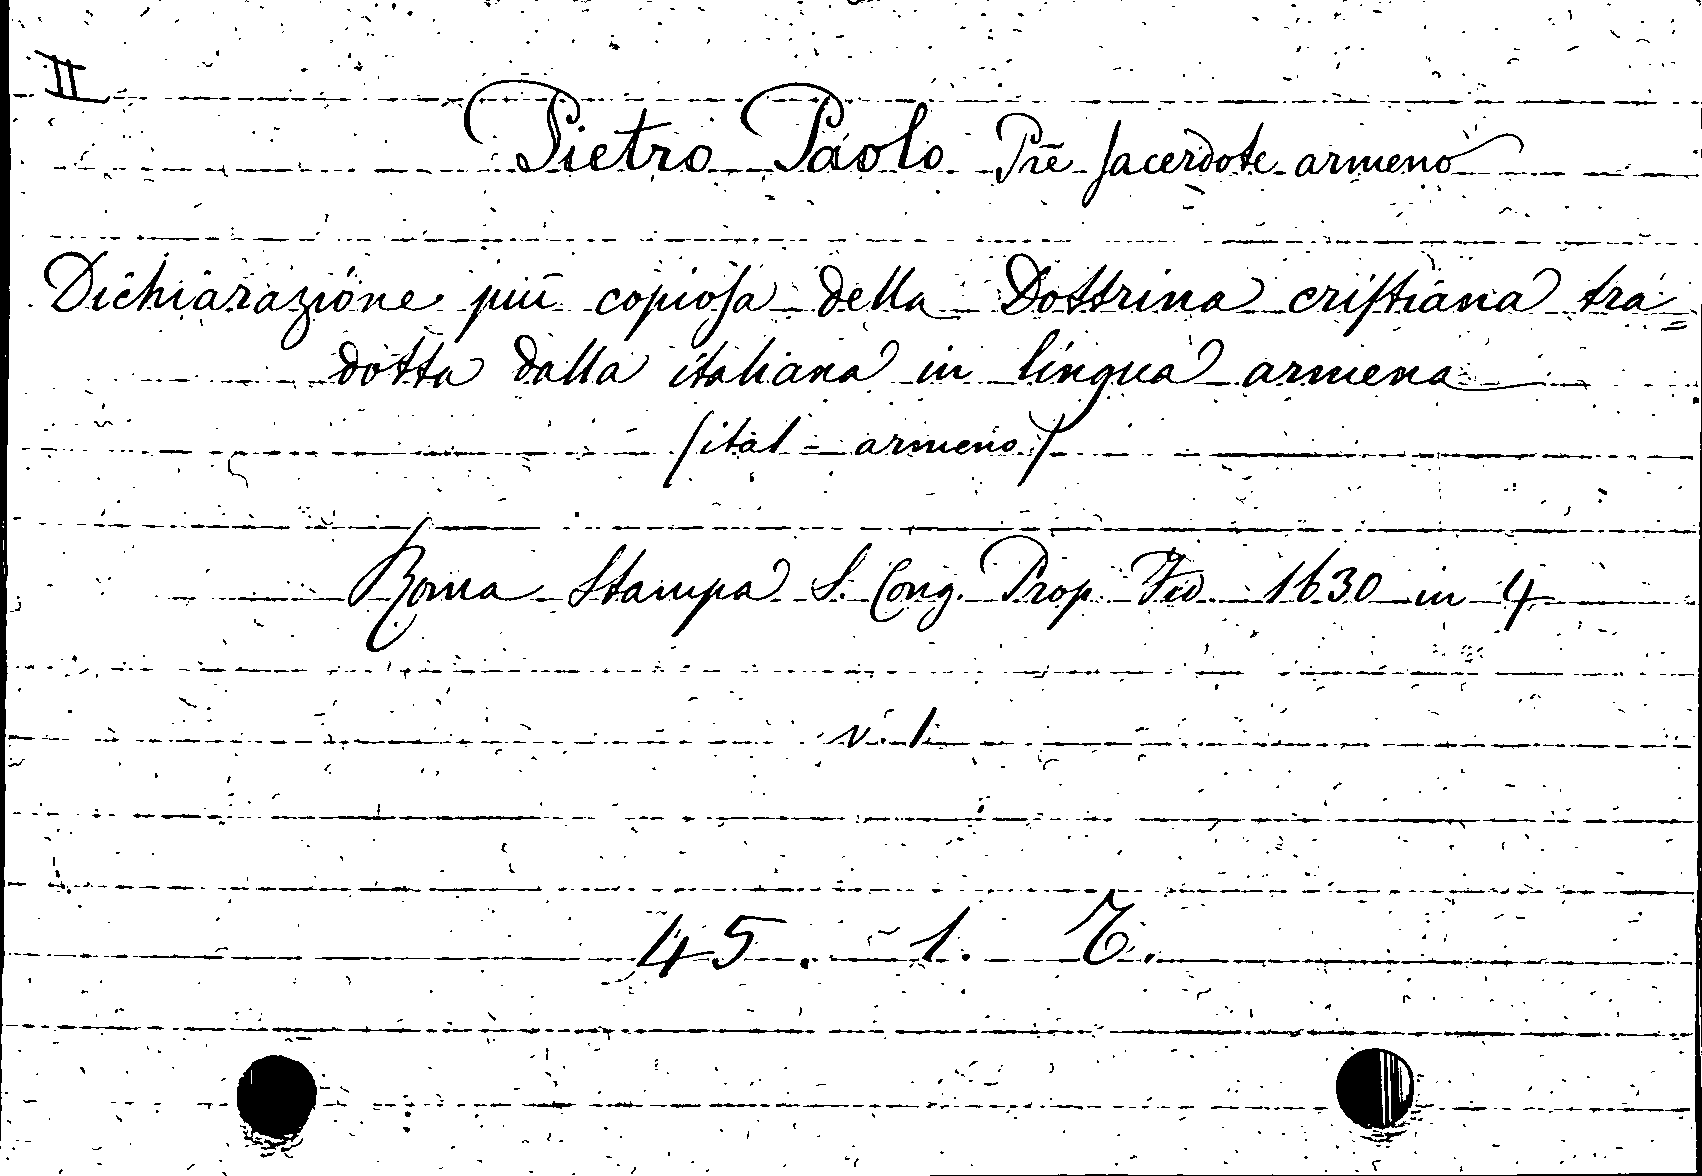 II
Pietro Paolo Prē sacerdote armeno
Dichiarazione più copiosa della Dottrina cristiana tra=
dotta dalla italiana in lingua armena
(ital - armeno)
Roma Stampa S. Cong. Prop. Fid. 1630 in 4
v. 1
45. 1.